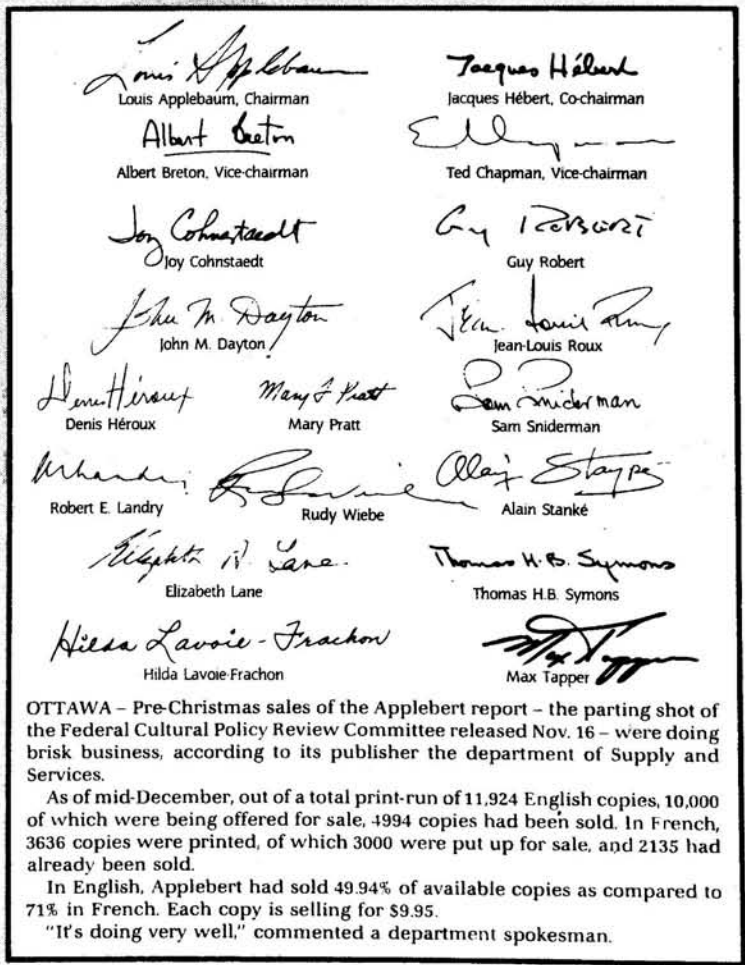 Louis Applebaum Jacques Hébert
Louis Applebaum, Chairman Jacques Hébert, Co-chairman
Albert Breton
Albert Breton, Vice-chairman Ted Chapman, Vice-chairman
Joy Cohnstaedt Guy Robert
Joy Cohnstaedt Guy Robert
John M. Dayton Jean-Louis Roux
John M. Dayton Jean-Louis Roux
Denis Héroux Mary F Pratt Sam Sniderman
Denis Héroux Mary Pratt Sam Sniderman
Robert E. Landry Rudy Wiebe Alain Stanké
Elizabeth Lane
Elizabeth Lane Thomas H.B. Symons
Thomas H.B. Symons
Hilda Lavoie-Frachon Max Tapper
Hilda Lavoie-Frachon Max Tapper
OTTAWA – Pre-Christmas sales of the Applebert report – the parting shot of
the Federal Cultural Policy Review Committee released Nov. 16 – were doing
brisk business, according to its publisher the department of Supply and
Services.
As of mid-December, out of a total print-run of 11,924 English copies, 10,000
of which were being offered for sale, 4994 copies had been sold. In French,
3636 copies were printed, of which 3000 were put up for sale, and 2135 had
already been sold.
In English, Applebert had sold 49.94% of available copies as compared to
71% in French. Each copy is selling for $9.95.
"It's doing very well," commented a department spokesman.